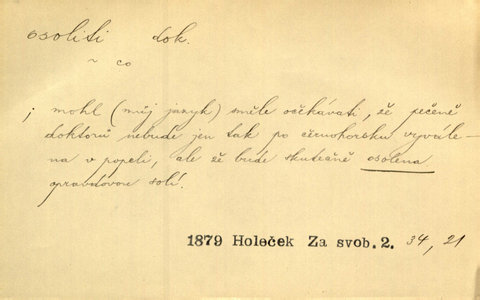 osoliti dok.
~ co
; mohl (můj jazyk) směle očekávati, že pečeně
doktorů nebude jen tak po černohorsku vyvále-
na v popeli, ale že bude skutečně osolena
opravdovou solí.
1879 Holeček Za svob. 2. 34, 21